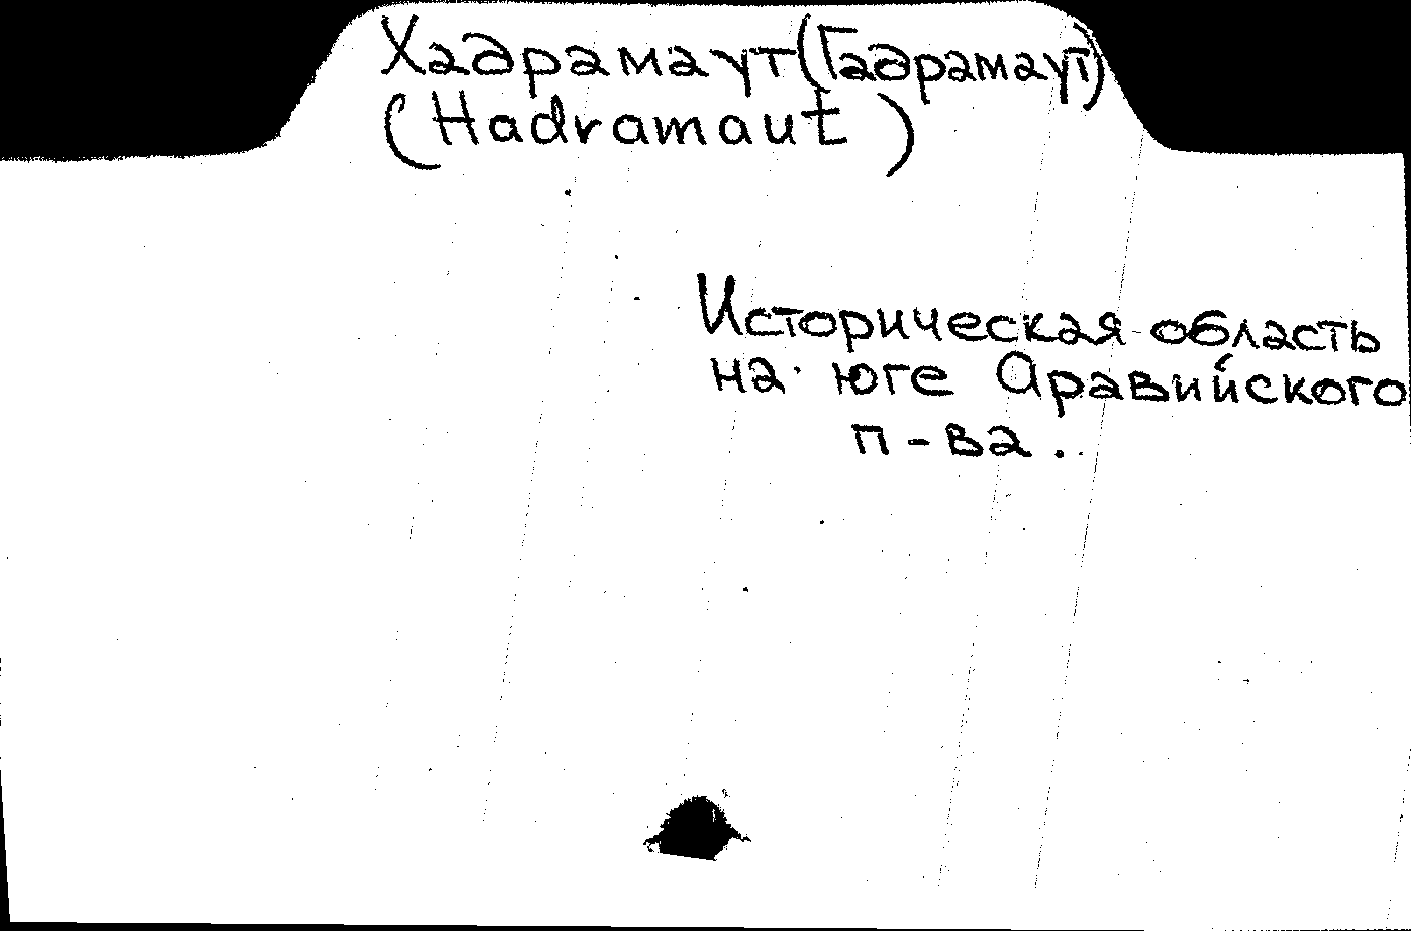 Хадрамаут (Гадрамаут)
(Hadramaut)
Историческая область
на юге Аравийского
п-ва.